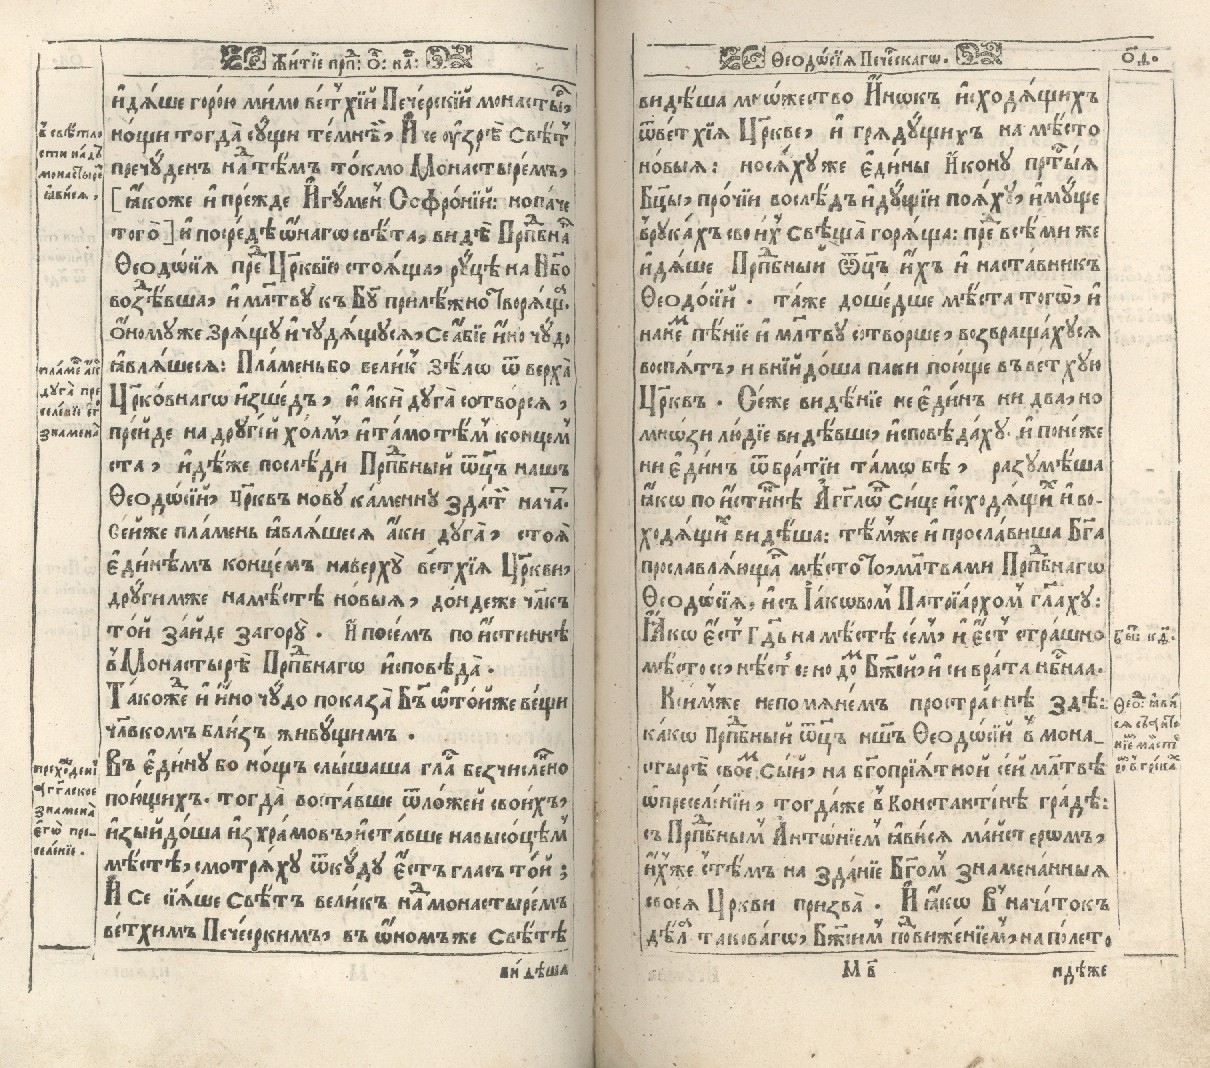 Житїе прпⷣ: ѻ҃: на҃:
и҆дѧ́ше горо́ю ми́мо ве́тхїй Пече́рскїй монасты́рь,
но́щи тогда̀ сꙋ́щи те́мнѣ, И҆ се ᲂу҆зрѣ̀ Свѣ́тъ
пречꙋ́денъ надъ тѣ́мъ то́кмо Монастыре́мъ,
[ꙗ҆́коже и҆ пре́жде И҆гꙋ́менъ Софро́нїй: но па́че
того̀] и҆ посре́дѣ ѻ҆́нагѡ свѣ́та, ви́дѣ Прпⷣбнаг
Ѳеодѡ́сїѧ преⷣ Цр҃квїю стоѧ́ща, рꙋ́цѣ на Нб҃о
воздѣ́вша, и҆ мл҃твꙋ къ Бг҃ꙋ прилѣ́жно творѧ́щ.
ѻ҆́номꙋ же зрѧ́щꙋ и҆ чꙋдѧ́щꙋсѧ, Се а҆́бїе и҆́но чꙋ́до
ꙗ҆влѧ́шесѧ: Пла́мень бо вели́къ зѣлѡ̀ ѿ верха̀
Цр҃ко́внагѡ и҆зше́дъ, и҆ а҆́ки дꙋга̀ сотвори́сѧ,
пре́йде на дрꙋгі́й хо́лмъ, и҆ та́мо тѣ́мъ конце́мъ
ста̀, и҆дѣ́же послѣ́ди Прпⷣбный ѿц҃ъ нашъ
Ѳеодѡ́сїй, цр҃квь но́вꙋ ка́меннꙋ зда́ти нача́т.
Се́йже пла́мень ꙗ҆влѧ́шесѧ а҆́ки дꙋга̀, стоѧ̀
є҆ди́нѣмъ конце́мъ наверхꙋ̀ ве́тхїѧ Цр҃кви,
дрꙋги́мже на мѣ́стѣ но́выѧ, до́ндеже чл҃къ
то́й за́йде загорꙋ̀. И҆ посе́мъ по и҆́стиннѣ
в̾ Монастырѣ̀ Прпⷣбнагѡ и҆сповѣ́да.
Та́коже и҆ и҆́но чꙋ́до показа̀ Бг҃ъ ѡ҆ то́йже ве́щи
чл҃вкомъ бли́зъ живꙋ́щимъ.
Въ є҆ди́нꙋ бо но́щъ слы́шаша гла́съ безчи́слено
пою́щихъ. тогда̀ воста́вше ѿ ло́жей свои́хъ,
и҆зыйдо́ша и҆з̾ хра́мовъ, и҆ ста́вше на высо́цѣмъ
мѣ́стѣ, смотрѧ́хꙋ ѿкꙋ́дꙋ є҆́стъ гласъ то́й;
И҆ Се сїѧ́ше Свѣ́тъ вели́къ надъ монастыре́мъ
ве́тхимъ Пече́ркимъ, въ ѻ҆́номъже Свѣ́тѣ
ви́дѣша
в̾ свѣ́тло
сти на́дъ
монасты́рем
ꙗ҆ви́сѧ.
пла́мень а҆́ки
дꙋга̀ пре
селе́нїе є҆гѡ̀
знамена̀
преⷯжде́ни
а҆́гг҃лское
знамена̀
є҆гѡ̀ пре-
селе́нїе.
Ѳеодѡ́сїѧ Пече́рскагѡ.
ѻ҃д.
ви́дѣша мно́жество И҆́нокъ и҆сходѧ́щихъ
ѿ ве́тхїѧ Цр҃кве, и҆ грѧдꙋ́щихъ на мѣ́сто
но́выѧ: носѧ́хꙋ же є҆ди́ны И҆ко́нꙋ прт҃ы́ѧ
Бц҃ы, про́чїи во слѣ́дъ и҆дꙋ́щїи поѧ́хꙋ, и҆мꙋ́ще
в̾рꙋка́хъ свои́хъ Свѣ́ща горѧ́ща: преⷣ всѣ́ми же
и҆дѧ́ше Прпⷣбный Ѿц҃ъ и҆́хъ и҆ наста́вникъ
Ѳеодо́сїй. та́же доше́дше мѣ́ста тогѡ̀, и҆
на не́мъ пѣ́нїе и҆ мл҃твꙋ сотво́рше, возвраща́хꙋсѧ
воспѧ́ть, и вни́йдоша па́ки пою́ще въ ве́тхꙋю
Цр҃квъ. Се́же ви́дѣнїе не є҆ди́нъ ни два, но
мно́зи лю́дїе ви́дѣвше, и҆сповѣ́дахꙋ. и҆ поне́же
ни є҆ди́нъ ѿ бра́тїи та́мѡ бѣ̀, разꙋмѣ́ша
ꙗ҆́кѡ по и҆́стиннѣ А҆́гг҃лѡвъ си́це и҆сходѧ́щихъ и҆ во-
ходѧ́щихъ ви́дѣша: тѣ́мже и҆ просла́виша Бг҃а
прославлѧ́юща мѣ́сто то̀, мл҃твами Прпⷣбнагѡ
Ѳеодѡ́сїѧ, и҆ съ І҆а́кѡвомъ Патрїа́рхомъ гл҃ахꙋ:
Ꙗ҆́кѡ є҆́стъ Гдⷭ҇ь на мѣ́стѣ се́мъ, и҆ є҆́стъ стра́шно
мѣ́сто сє, нѣ́стъ се но до́мъ Бж҃ій, и҆ си врата̀ нбⷭ҇наа.
К̾ си́мже непомѧне́мъ простра́ннѣ здѣ̀:
ка́кѡ Прпⷣбный ѿц҃ъ нш҃ъ Ѳеодѡ́сїй в̾ мона-
стырѣ̀ свое́мъ Сы́й, на бг҃опрїѧ́тной се́й мл҃твѣ
ѡ҆ преселе́нїи, тогда́же в̾ Константи́нѣ гра́дѣ:
съ Прпⷣбнымъ А҆нтѡ́нїемъ ꙗ҆ви́сѧ ма́йстеромъ,
и҆́хже с̾ тѣ́мъ на зда́нїе Бг҃омъ знамена́нныѧ
своеѧ̀ Цр҃кви призва̀. И҆ ꙗ҆́кѡ в̾ нача́токъ
дѣ́лъ такова́гѡ, Бж҃іимъ подвиже́нїемъ, на по́лєто
М в҃
идѣже
быт҃: кн҃.
Ѳеоⷣ: ꙗ҆ви́
сѧ